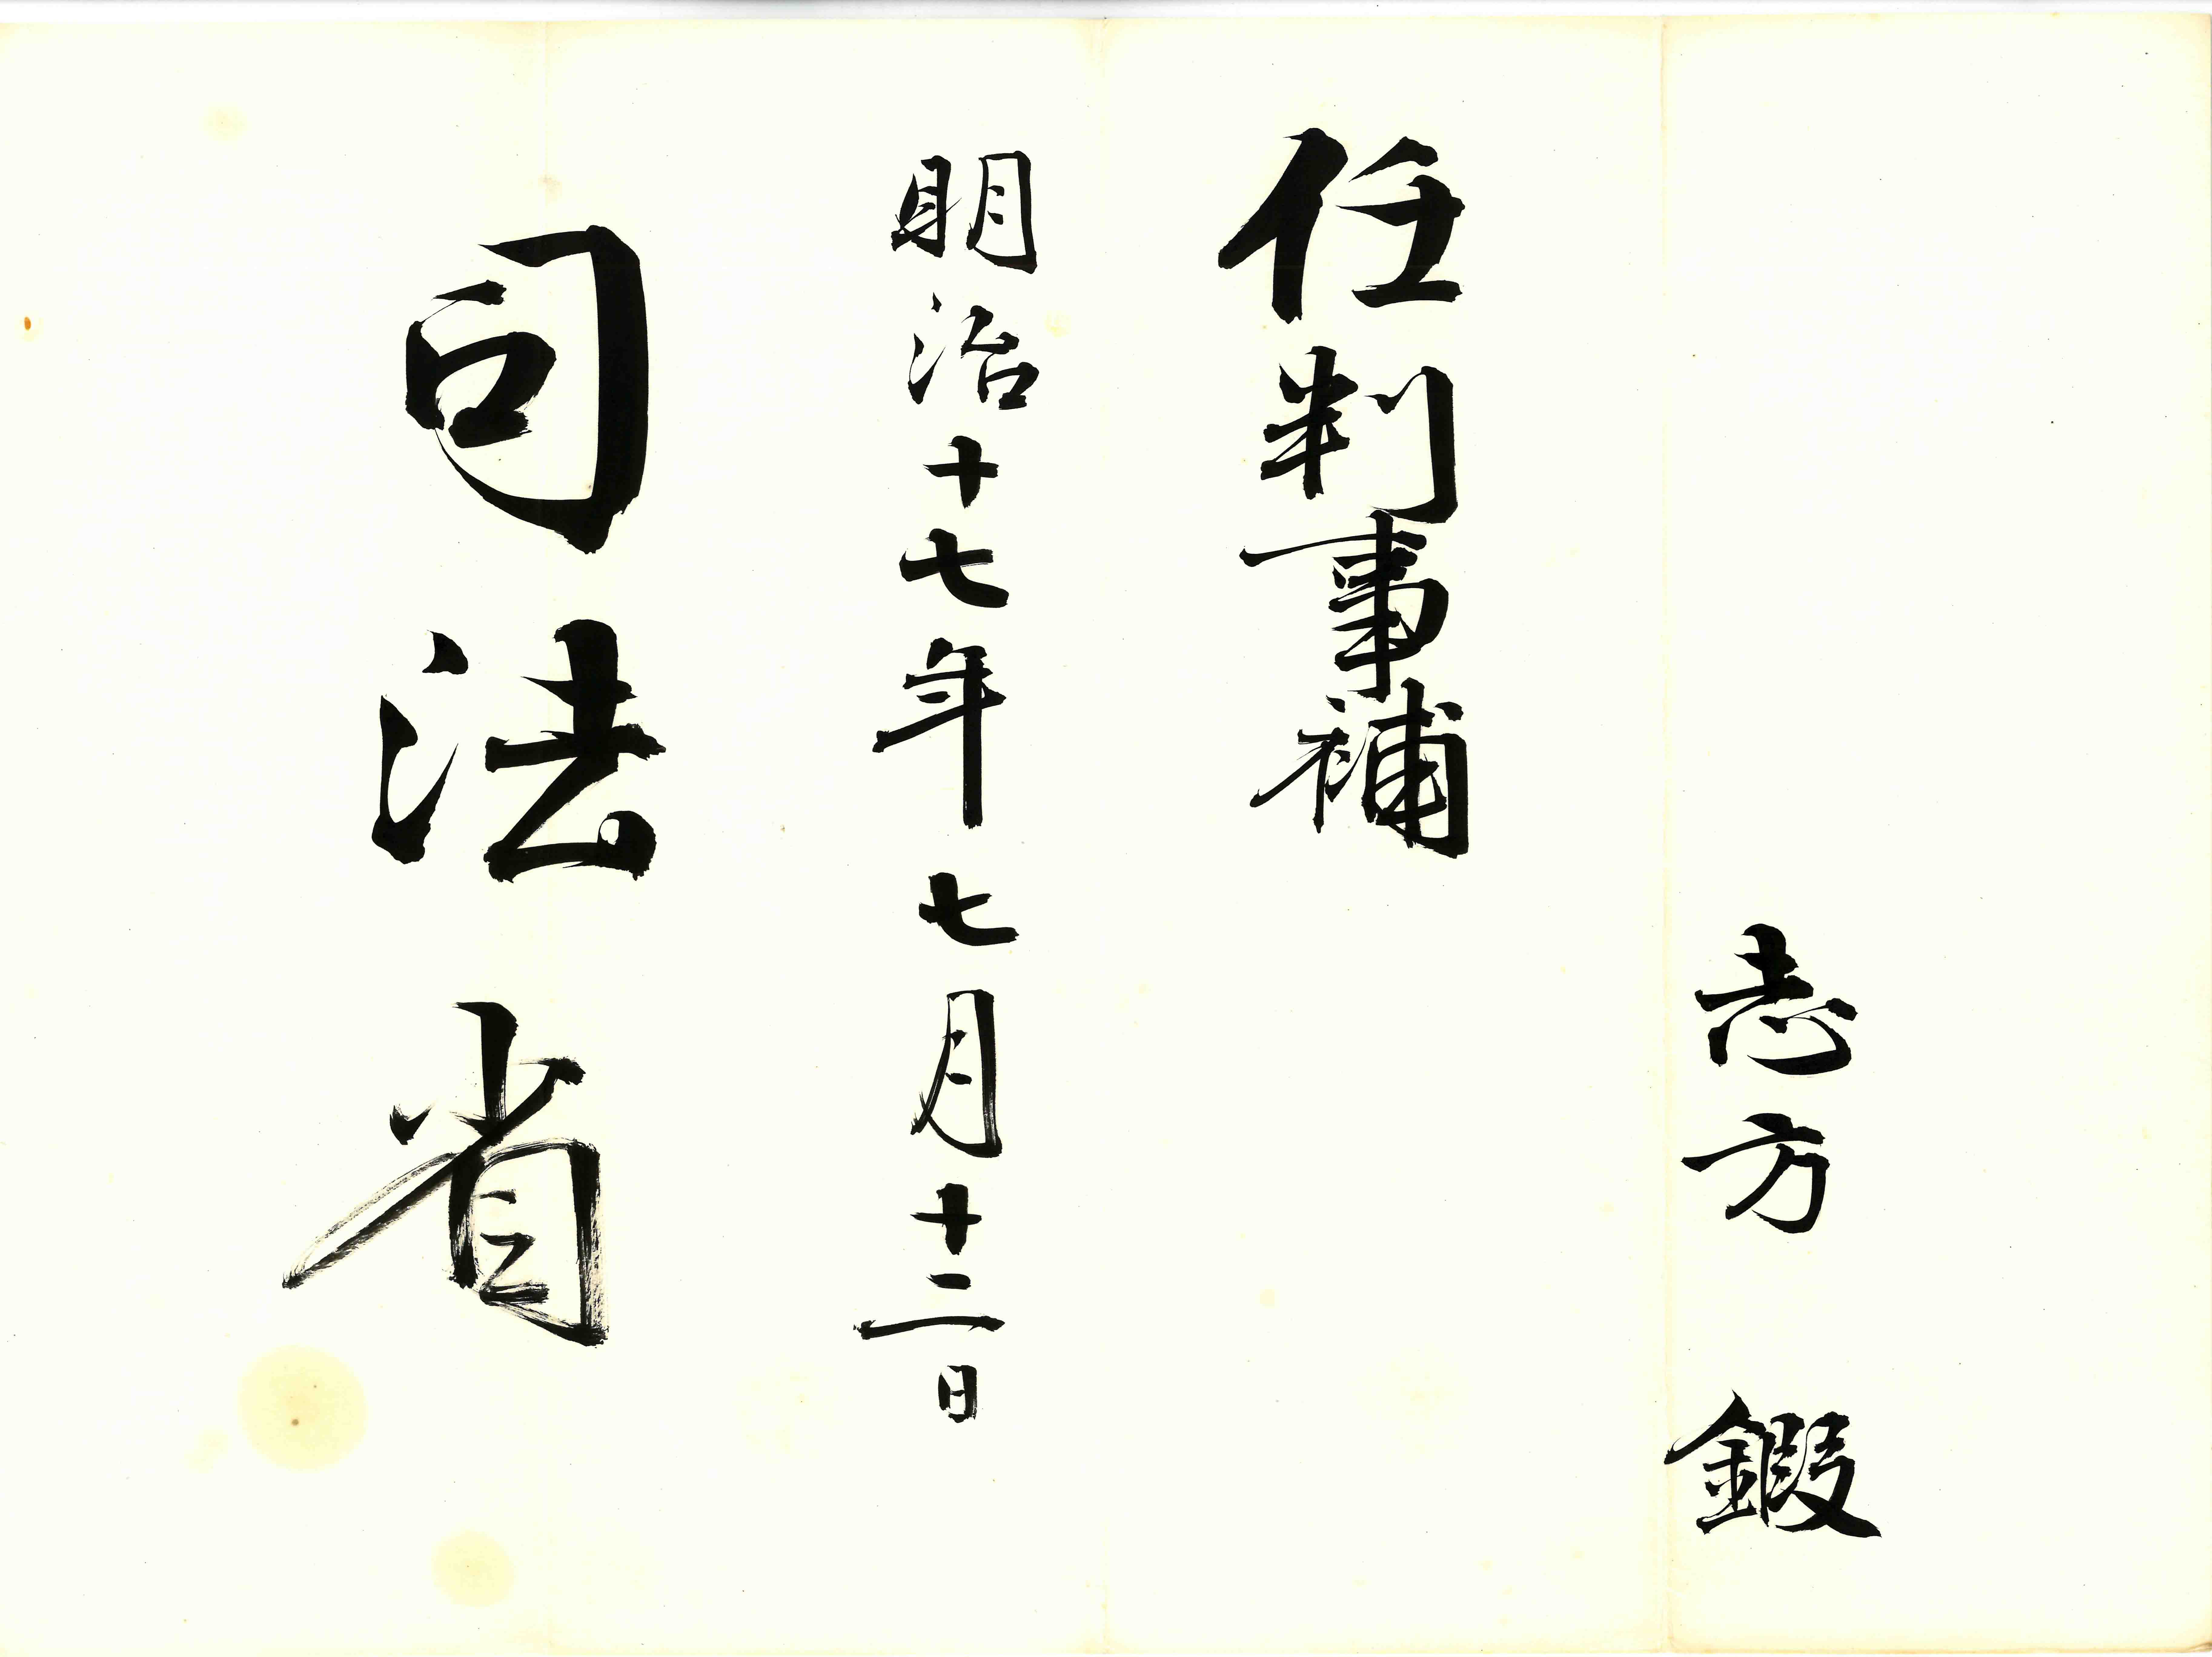 志方鍜
任判事補
明治十七年七月十二日
司法省